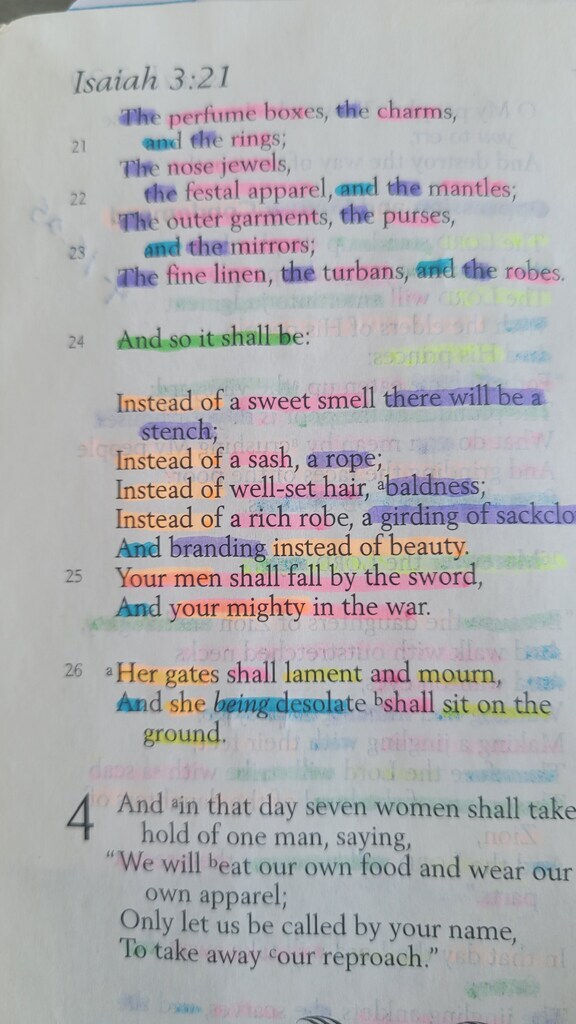 Isaiah 3:21
The perfume boxes, the charms,
21 and the rings;
The nose jewels,
22 the festal apparel, and the mantles;
The outer garments, the purses,
23 and the mirrors;
The fine linen, the turbans, and the robes.
24 And so it shall be:
Instead of a sweet smell there will be a
stench;
Instead of a sash, a rope;
Instead of well-set hair, ᵃbaldness;
Instead of a rich robe, a girding of sackclo
And branding instead of beauty.
25 Your men shall fall by the sword,
And your mighty in the war.
26 ᵃHer gates shall lament and mourn,
And she being desolate ᵇshall sit on the
ground.
4 And ᵃin that day seven women shall take
hold of one man, saying,
“We will ᵇeat our own food and wear our
own apparel;
Only let us be called by your name,
To take away ᶜour reproach.”